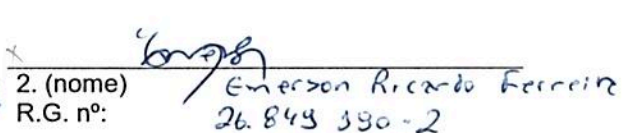 2. (nome) Emerson Ricardo Ferreira
R.G. nº: 26.849 990-2